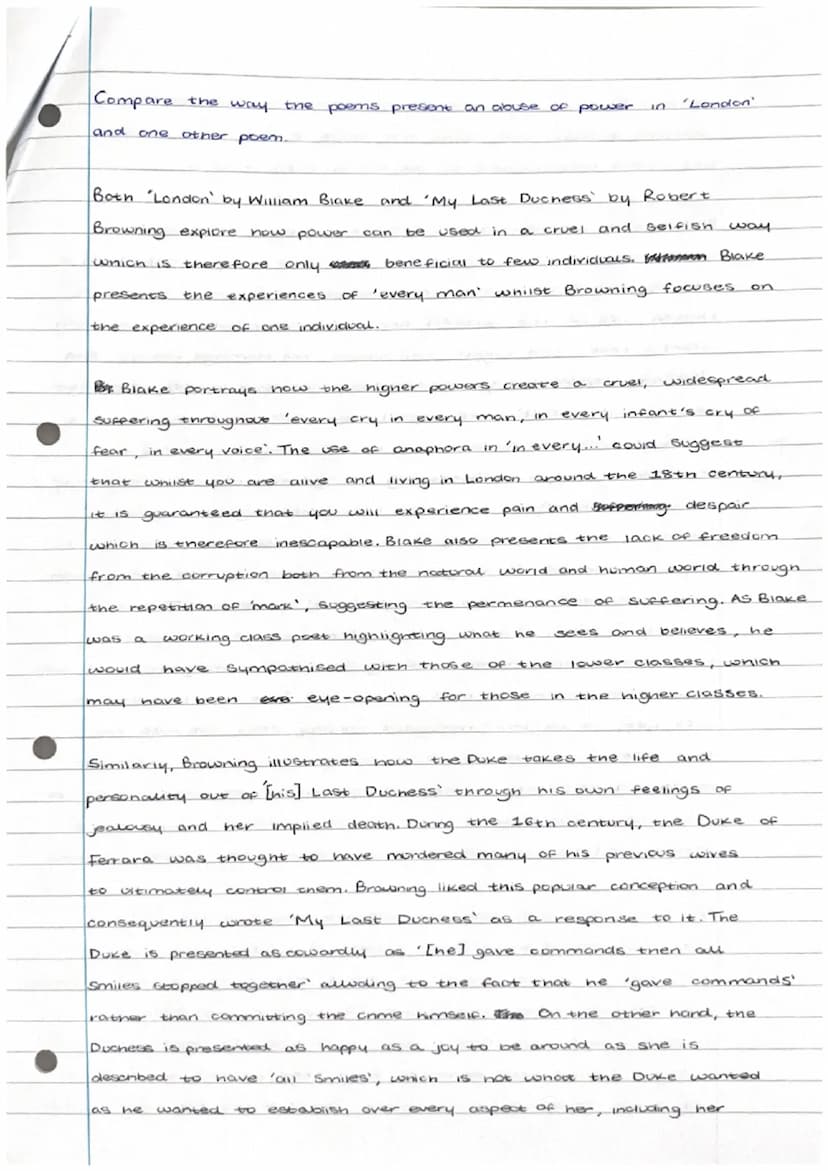 Compare the way the poems present an abuse of power in 'London'
and one other poem.
Both 'London' by William Blake and 'My Last Duchess' by Robert
Browning explore how power can be used in a cruel and selfish way
which is therefore only beneficial to few individuals. Blake
presents the experiences of 'every man' whilst Browning focuses on
the experience of one individual.
Blake portrays how the higher powers create a cruel, widespread
suffering throughout 'every cry in every man, in every infant's cry of
fear, in every voice'. The use of anaphora in 'in every...' could suggest
that whilst you are alive and living in London around the 18th century,
it is guaranteed that you will experience pain and despair
which is therefore inescapable. Blake also presents the lack of freedom
from the corruption both from the natural world and human world through
the repetition of 'mark', suggesting the permenance of suffering. As Blake
was a working class poet highlighting what he sees and believes, he
would have sympathised with those of the lower classes, which
may have been eye-opening for those in the higher classes.
Similarly, Browning illustrates how the Duke takes the life and
personality out of '[his] Last Duchess' through his own feelings of
jealousy and her implied death. During the 16th century, the Duke of
Ferrara was thought to have murdered many of his previous wives
to ultimately control them. Browning liked this popular conception and
consequently wrote 'My Last Duchess' as a response to it. The
Duke is presented as cowardly as '[he] gave commands then all
smiles stopped together' alluding to the fact that he 'gave commands'
rather than committing the crime himself. On the other hand, the
Duchess is presented as happy as a joy to be around as she is
described to have 'all smiles', which is not what the Duke wanted
as he wanted to establish over every aspect of her, including her